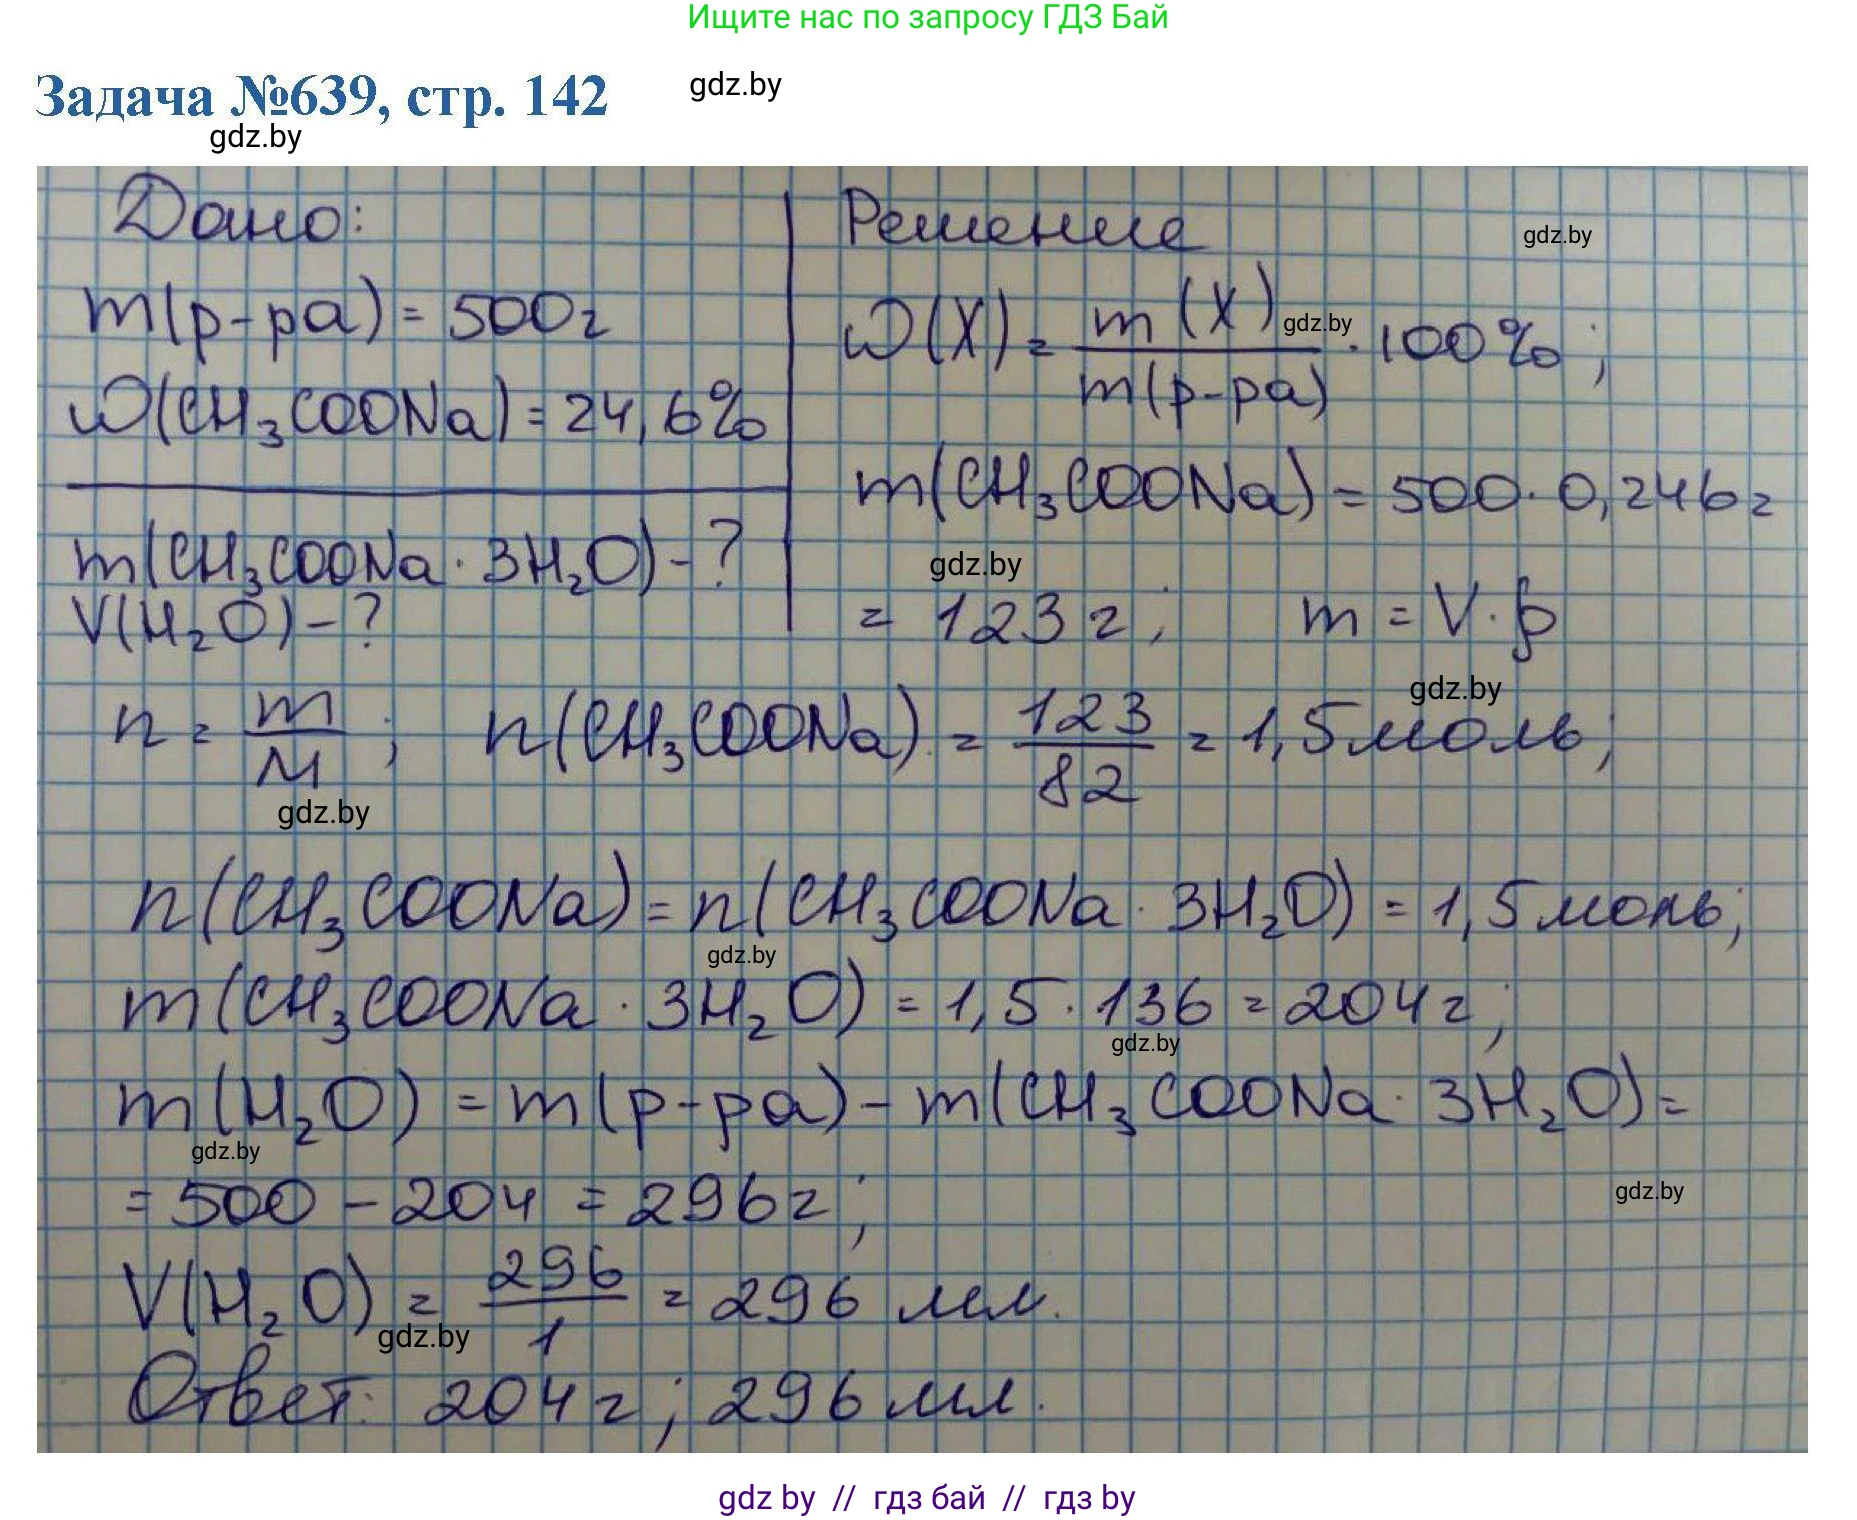 Ищите нас по запросу ГДЗ Бай
Задача №639, стр. 142
gdz.by
gdz.by
Дано:
m(р-ра) = 500г
ω(CH₃COONa) = 24,6%
m(CH₃COONa · 3H₂O) - ?
V(H₂O) - ?
Решение
gdz.by
ω(X) = m(X) / m(р-ра) · 100%;
gdz.by
m(CH₃COONa) = 500 · 0,246 =
gdz.by
= 123 г; m = V · ρ
gdz.by
n = m / M; n(CH₃COONa) = 123 / 82 = 1,5 моль;
gdz.by
n(CH₃COONa) = n(CH₃COONa · 3H₂O) = 1,5 моль;
gdz.by
m(CH₃COONa · 3H₂O) = 1,5 · 136 = 204 г;
gdz.by
m(H₂O) = m(р-ра) - m(CH₃COONa · 3H₂O) =
gdz.by
= 500 - 204 = 296 г;
gdz.by
V(H₂O) = 296 / 1 = 296 мл.
gdz.by
Ответ: 204 г; 296 мл.
gdz by // гдз бай // гдз by